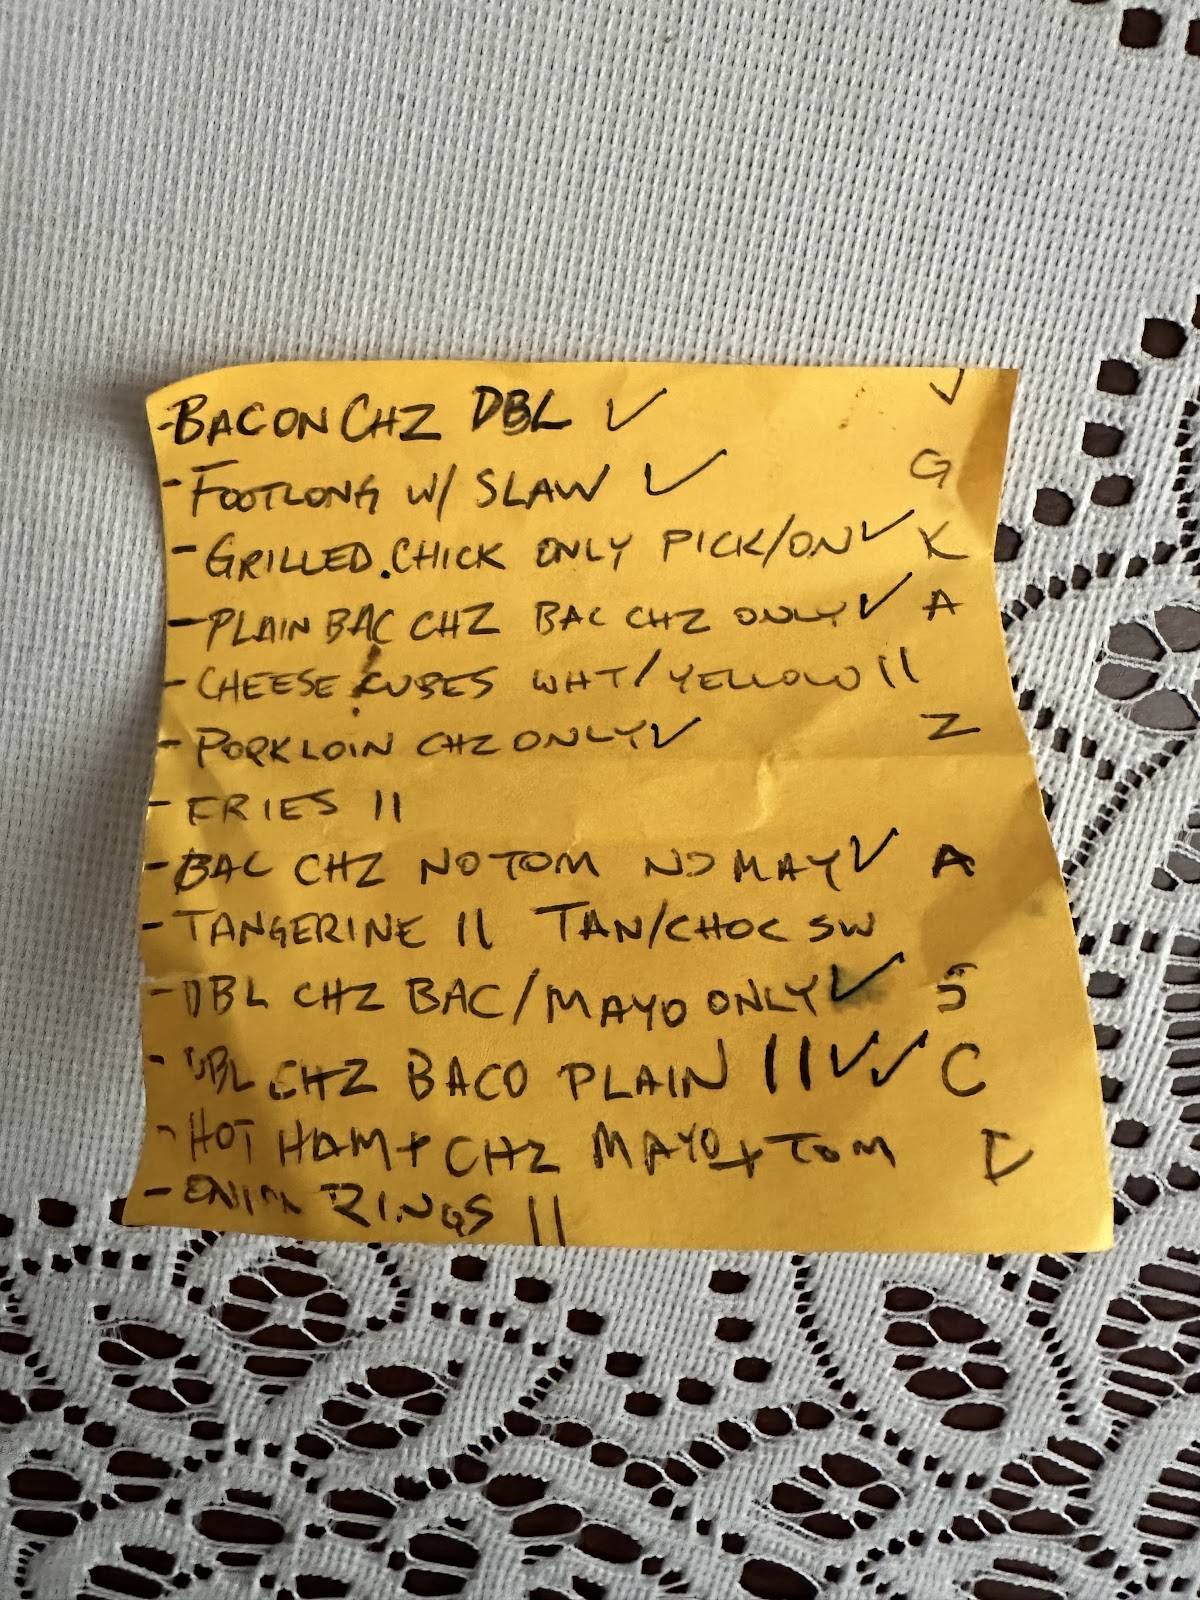 - BACON CHZ DBL ✓ J
- FOOTLONG W/ SLAW ✓ G
- GRILLED. CHICK ONLY PICK/ON ✓ K
- PLAIN BAC CHZ BAC CHZ ONLY ✓ A
- CHEESE CUBES WHT/YELLOW II
- PORK LOIN CHZ ONLY ✓ Z
- FRIES II
- BAC CHZ NO TOM NO MAY ✓ A
- TANGERINE II TAN/CHOC SW
- DBL CHZ BAC/MAYO ONLY ✓ S
- DBL CHZ BACO PLAIN II ✓✓ C
- HOT HAM + CHZ MAYO + TOM D
- ONION RINGS II